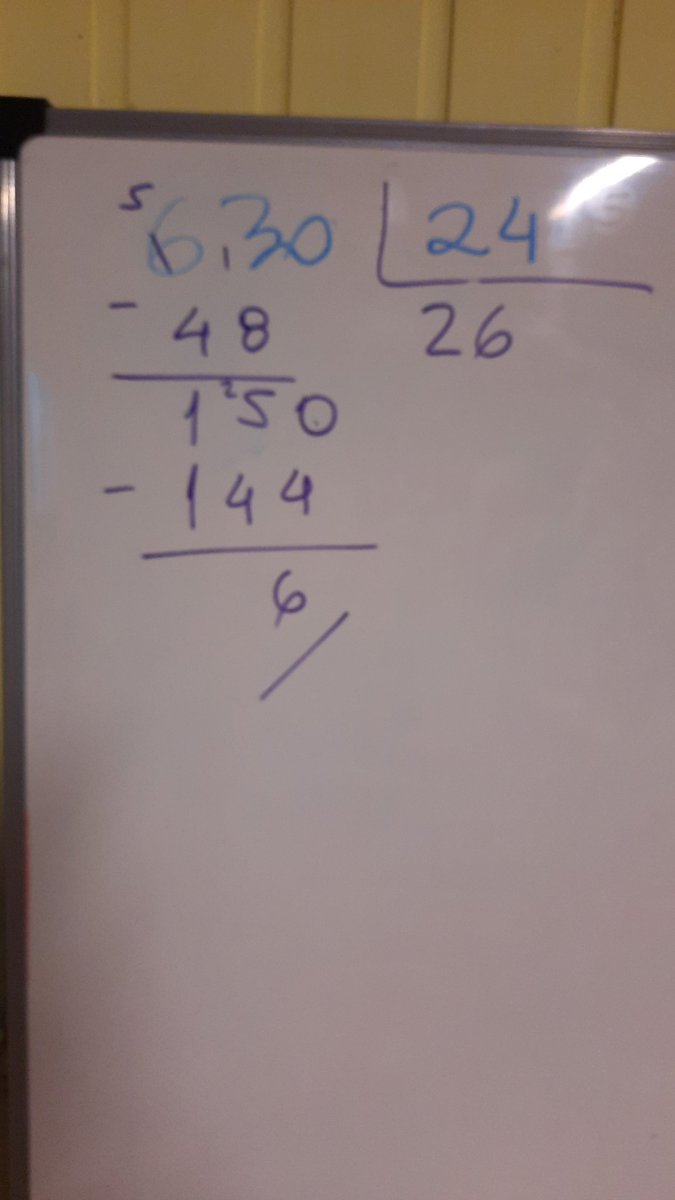 5
630 24
- 48 26
1 2 50
- 144
6